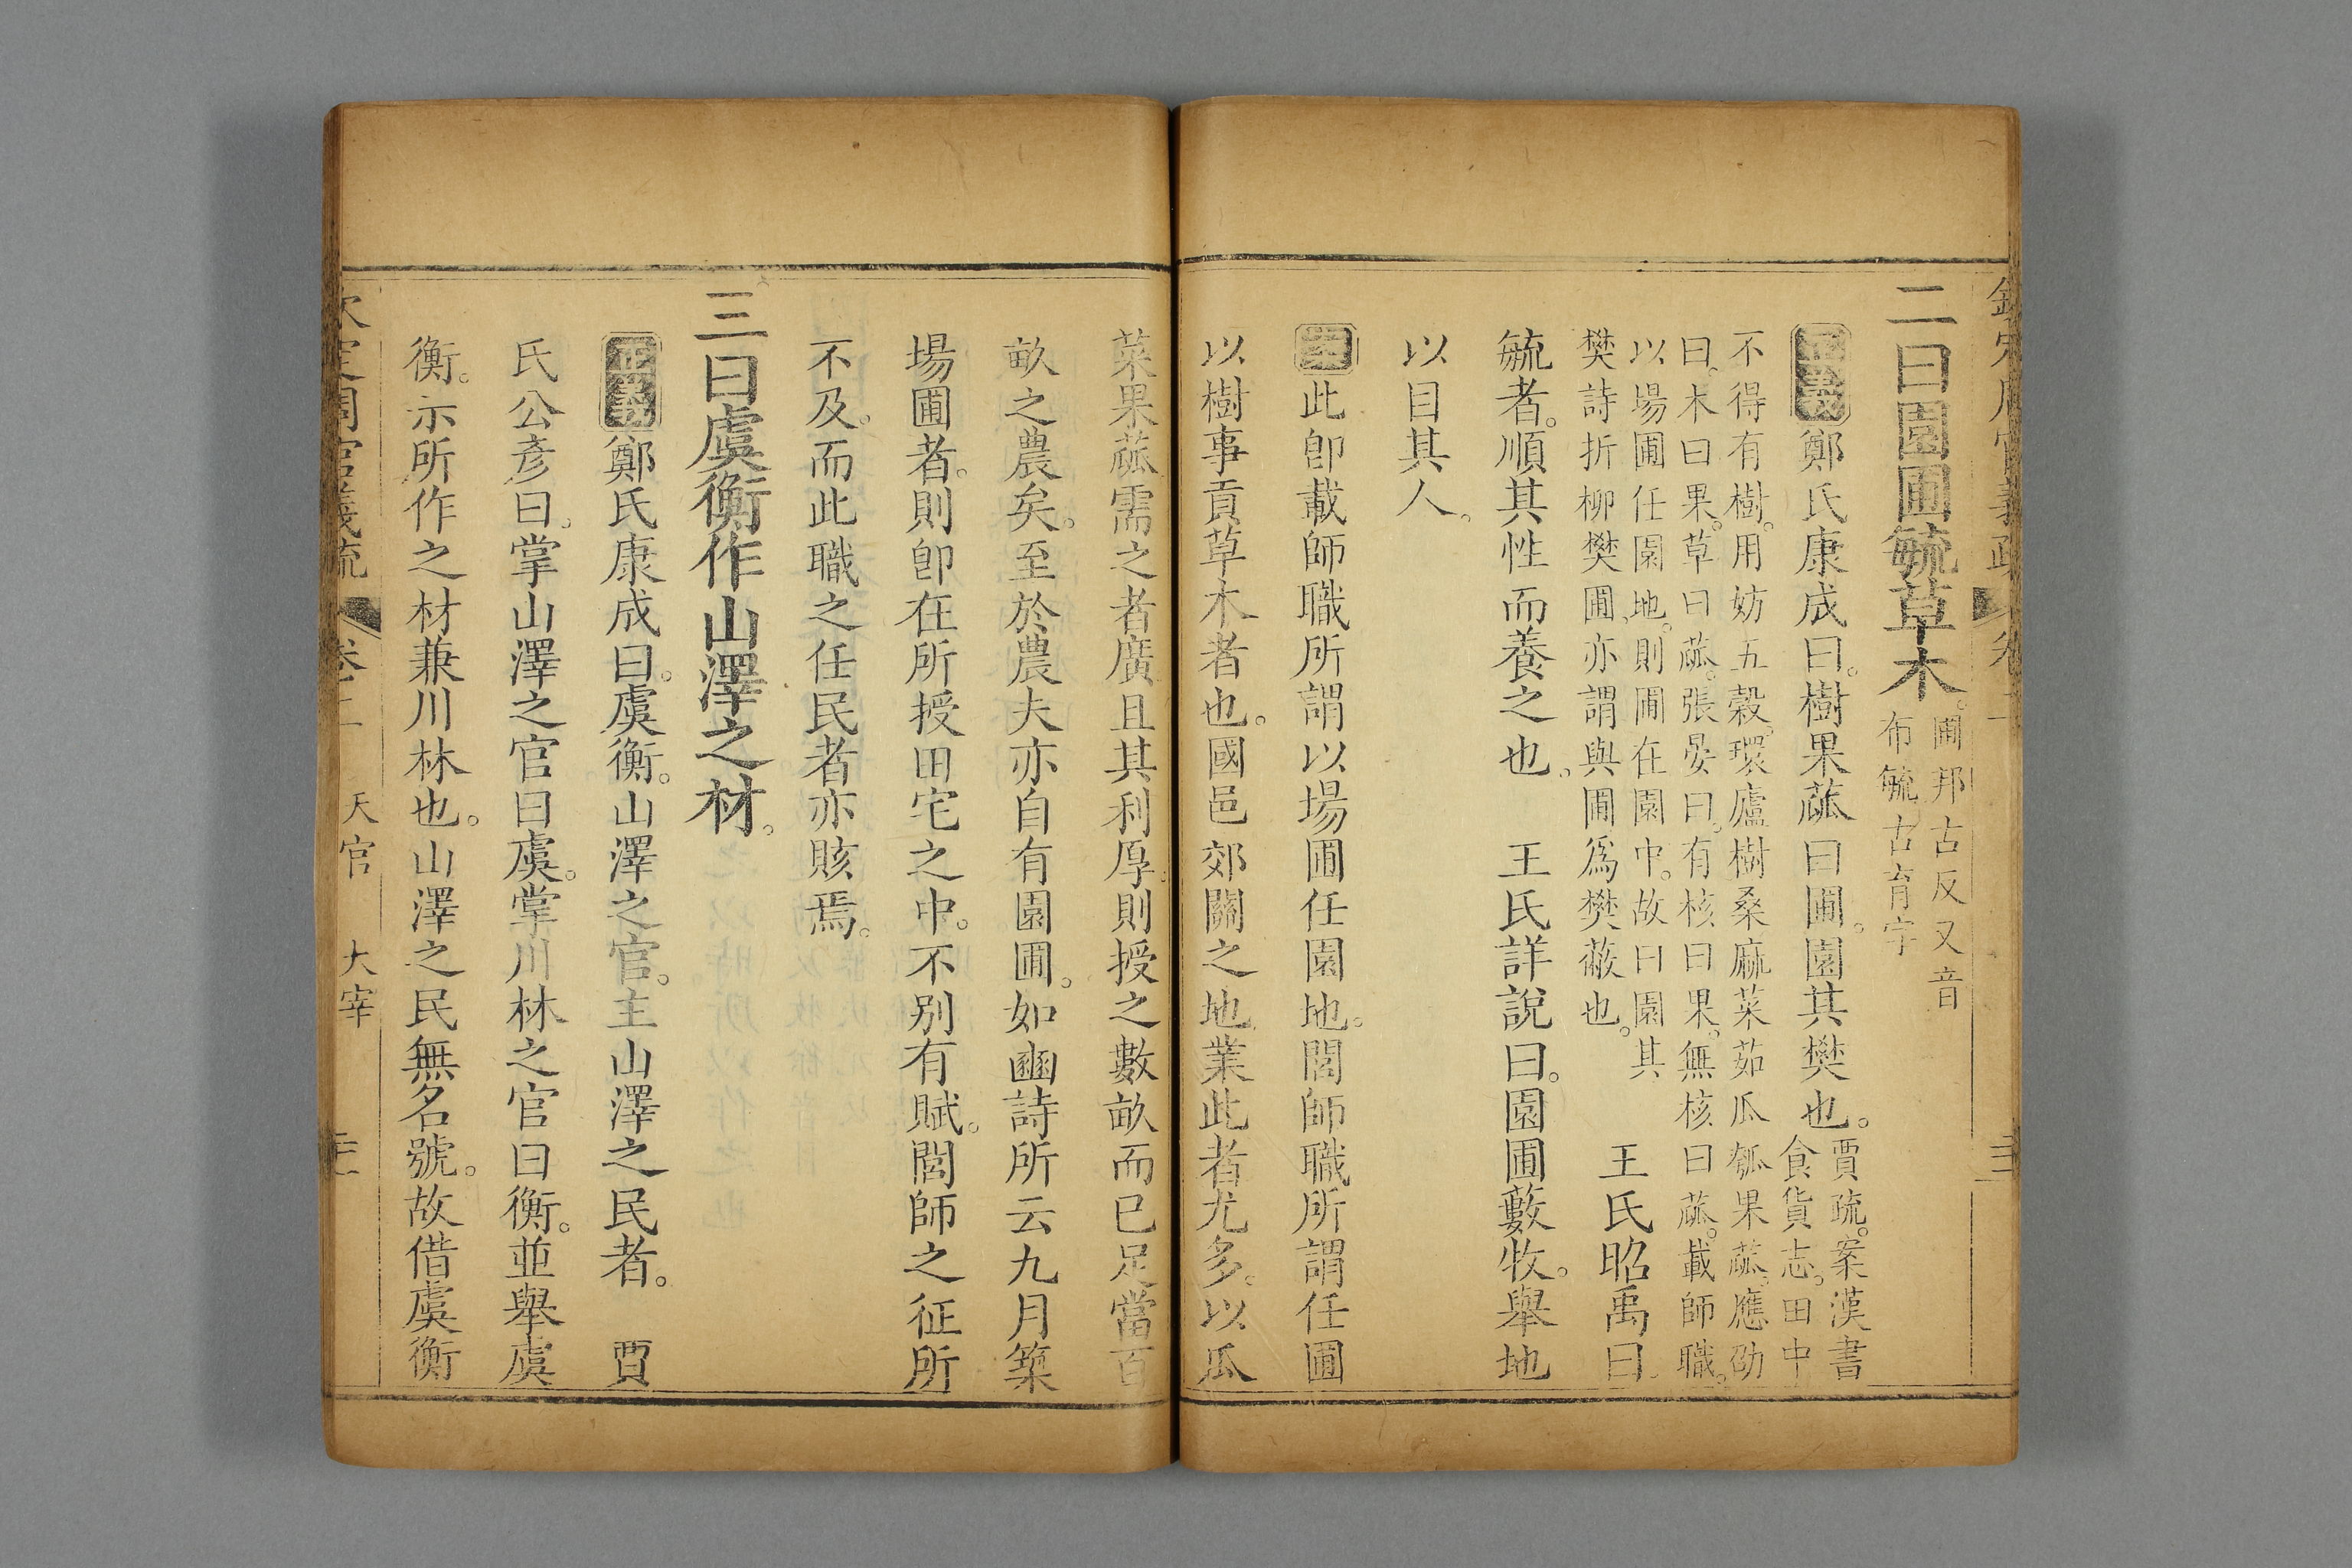 欽定周官義疏 卷二 三
二曰園圃毓草木。圃邦古反又音
布毓古育字
正義鄭氏康成曰。樹果蓏曰圃。園其樊也。賈疏。案漢書
食貨志。田中
不得有樹。用妨五穀。環廬樹桑麻菜茹瓜瓠果蓏。應劭
曰。木曰果。草曰蓏。張晏曰。有核曰果。無核曰蓏。載師職。
以場圃任園地。則圃在園中。故曰園其
樊詩折柳樊圃。亦謂與圃爲樊蔽也。王氏昭禹曰。
毓者。順其性而養之也。 王氏詳說曰。園圃藪牧。舉地
以目其人。
案此卽載師職所謂以場圃任園地。閭師職所謂任圃
以樹事貢草木者也。國邑郊關之地業此者尤多。以瓜
菜果蓏需之者廣且其利厚。則授之數畝而已足當百
畝之農矣。至於農夫亦自有園圃。如豳詩所云九月築
場圃者。則卽在所授田宅之中。不別有賦。閭師之征所
不及。而此職之任民者亦賅焉。
三曰虞衡作山澤之材。
正義鄭氏康成曰。虞衡。山澤之官。主山澤之民者。 賈
氏公彥曰。掌山澤之官曰虞。掌川林之官曰衡。並舉虞
衡。示所作之材兼川林也。山澤之民無名號。故借虞衡
欽定周官義疏 卷二 天官 大宰